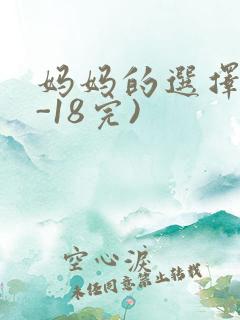 妈妈的選擇
-18完)
空心淚
未经同意禁止转载